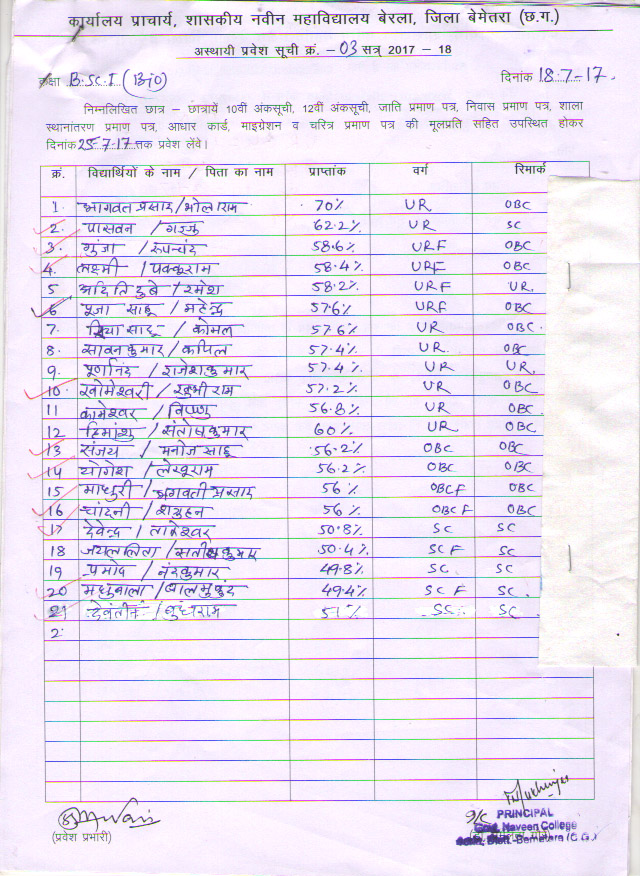 कार्यालय प्राचार्य, शासकीय नवीन महाविद्यालय बेरला, जिला बेमेतरा (छ.ग.)
अस्थायी प्रवेश सूची क्रं. -03 सत्र 2017 – 18
कक्षा B.Sc.I (Bio) दिनांक 18.7-17.
निम्नलिखित छात्र – छात्रायें 10वीं अंकसूची, 12वीं अंकसूची, जाति प्रमाण पत्र, निवास प्रमाण पत्र, शाला
स्थानांतरण प्रमाण पत्र, आधार कार्ड, माइग्रेशन व चरित्र प्रमाण पत्र की मूलप्रति सहित उपस्थित होकर
दिनांक 25-7-17 तक प्रवेश लेवें।
क्रं. विद्यार्थियों के नाम / पिता का नाम प्राप्तांक वर्ग रिमार्क
1. भागवत प्रसाद/भोलाराम 70% UR OBC
2. पासवन / 62.2% UR SC
3. गुंजा / रूपचंद 58.6% URF OBC
4. लक्ष्मी / पक्कूराम 58.4% URF OBC
5. अदिति दुबे / रमेश 58.2% URF UR.
6 पूजा साहू / महेन्द्र 57.6% URF OBC
7. साहू / कोमल 57.6% UR OBC.
8. सावन कुमार / कपिल 57.4% UR. OBC
9. पूर्णानंद / राजेश कुमार 57.4% UR UR.
10. खोमेश्वरी / राम 57.2% UR OBC
11 कामेश्वर / विष्णु 56.8% UR OBC.
12 हिमांशु / संतोष कुमार 60% UR OBC
13 संजय / मनोज साहू 56.2% OBC OBC
14 योगेश / लेखूराम 56.2% OBC OBC
15 माधुरी / भगवती प्रसाद 56% OBCF OBC
16 चांदनी / शत्रुहन 56% OBCF OBC
17 देवेन्द्र / तारेश्वर 50.8% SC SC
18 जयललिता / सतीष कुमार 50.4% SCF SC
19 प्रमोद / नंदकुमार 49.8% SC SC.
20 मधुबाला / बालमुकुंद 49.4% SC F SC.
21 / 51% SC SC
2:
(प्रवेश प्रभारी)
PRINCIPAL
Govt. Naveen College
Distt.-Bemetara (C.G.)